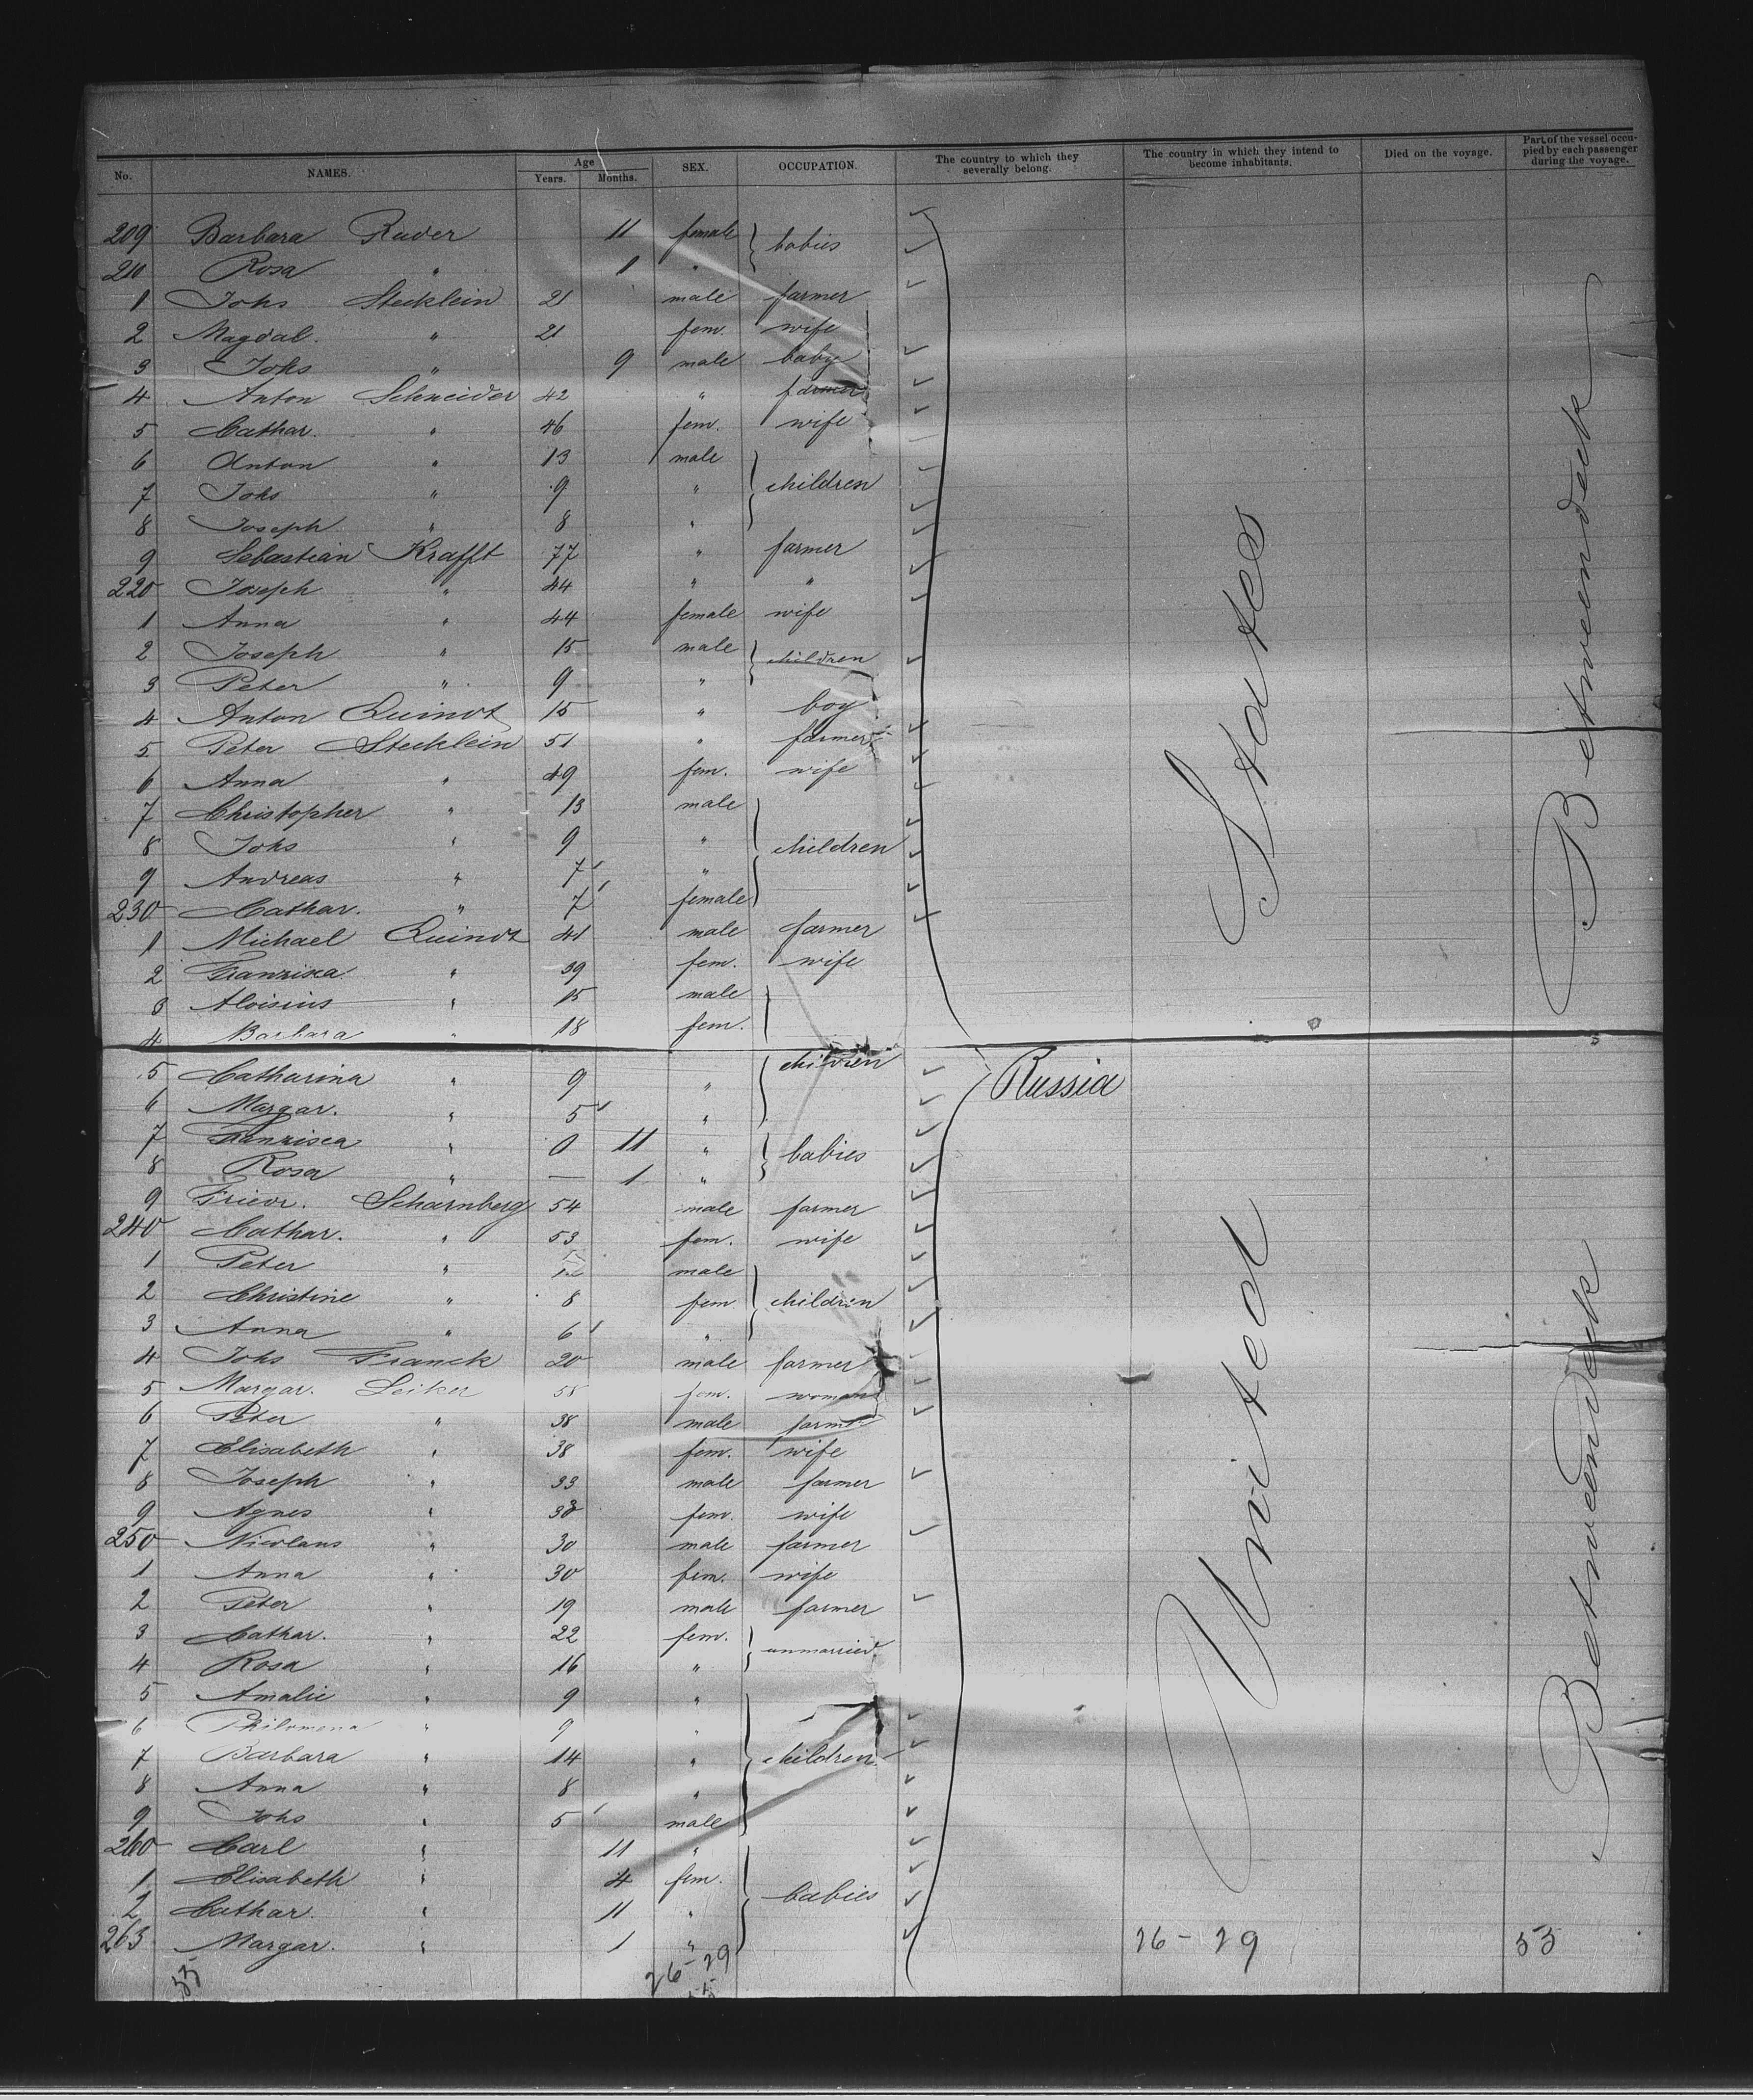 No. NAMES. Age Years. Months. SEX. OCCUPATION. The country to which they severally belong. The country in which they intend to become inhabitants. Died on the voyage. Part of the vessel occupied by each passenger during the voyage.
209 Barbara Ruder 11 female babies
210 Rosa " 1 "
1 Johs Stecklein 21 male farmer
2 Magdal. " 21 fem. wife
3 Johs " 9 male baby
4 Anton Schneider 42 " farmer
5 Cathar. " 46 fem. wife
6 Anton " 13 male
7 Johs " 9 " children
8 Joseph " 8 "
9 Sebastian Krafft 77 " farmer
220 Joseph " 44 " "
1 Anna " 44 female wife
2 Joseph " 15 male children
3 Peter " 9 "
4 Anton Quindt 15 " boy
5 Peter Stecklein 51 " farmer
6 Anna " 49 fem. wife
7 Christopher " 13 male
8 Johs " 9 " children
9 Andreas " 7 "
230 Cathar. " 7 female
1 Michael Quindt 41 male farmer
2 Franzisca " 39 fem. wife
3 Aloisius " 15 male
4 Barbara " 18 fem.
5 Catharina " 9 " children Russia
6 Margar. " 5 "
7 Franzisca " 0 11 " babies
8 Rosa " — 1 "
9 Friedr. Scharnberg 54 male farmer
240 Cathar. " 53 fem. wife
1 Peter " male
2 Christine " 8 fem children
3 Anna " 6 "
4 Johs Franck 20 male farmer
5 Margar. Leiker fem. woman
6 Peter " 38 male farmer
7 Elisabeth " 38 fem. wife
8 Joseph " 33 male farmer
9 Agnes " 33 fem. wife
250 Nicolaus " 30 male farmer
1 Anna " 30 fem. wife
2 Peter " 19 male farmer
3 Cathar. " 22 fem. unmarried
4 Rosa " 16 "
5 Amalie " 9 "
6 Philomena " 9 "
7 Barbara " 14 " children
8 Anna " 8 "
9 Johs " 5 male
260 Carl " 11 "
1 Elisabeth " 4 fem.
2 Cathar. " 11 " babies
263 Margar. " 1 "
26-29
26-29
55
United States
Betweendeck
Betweendeck